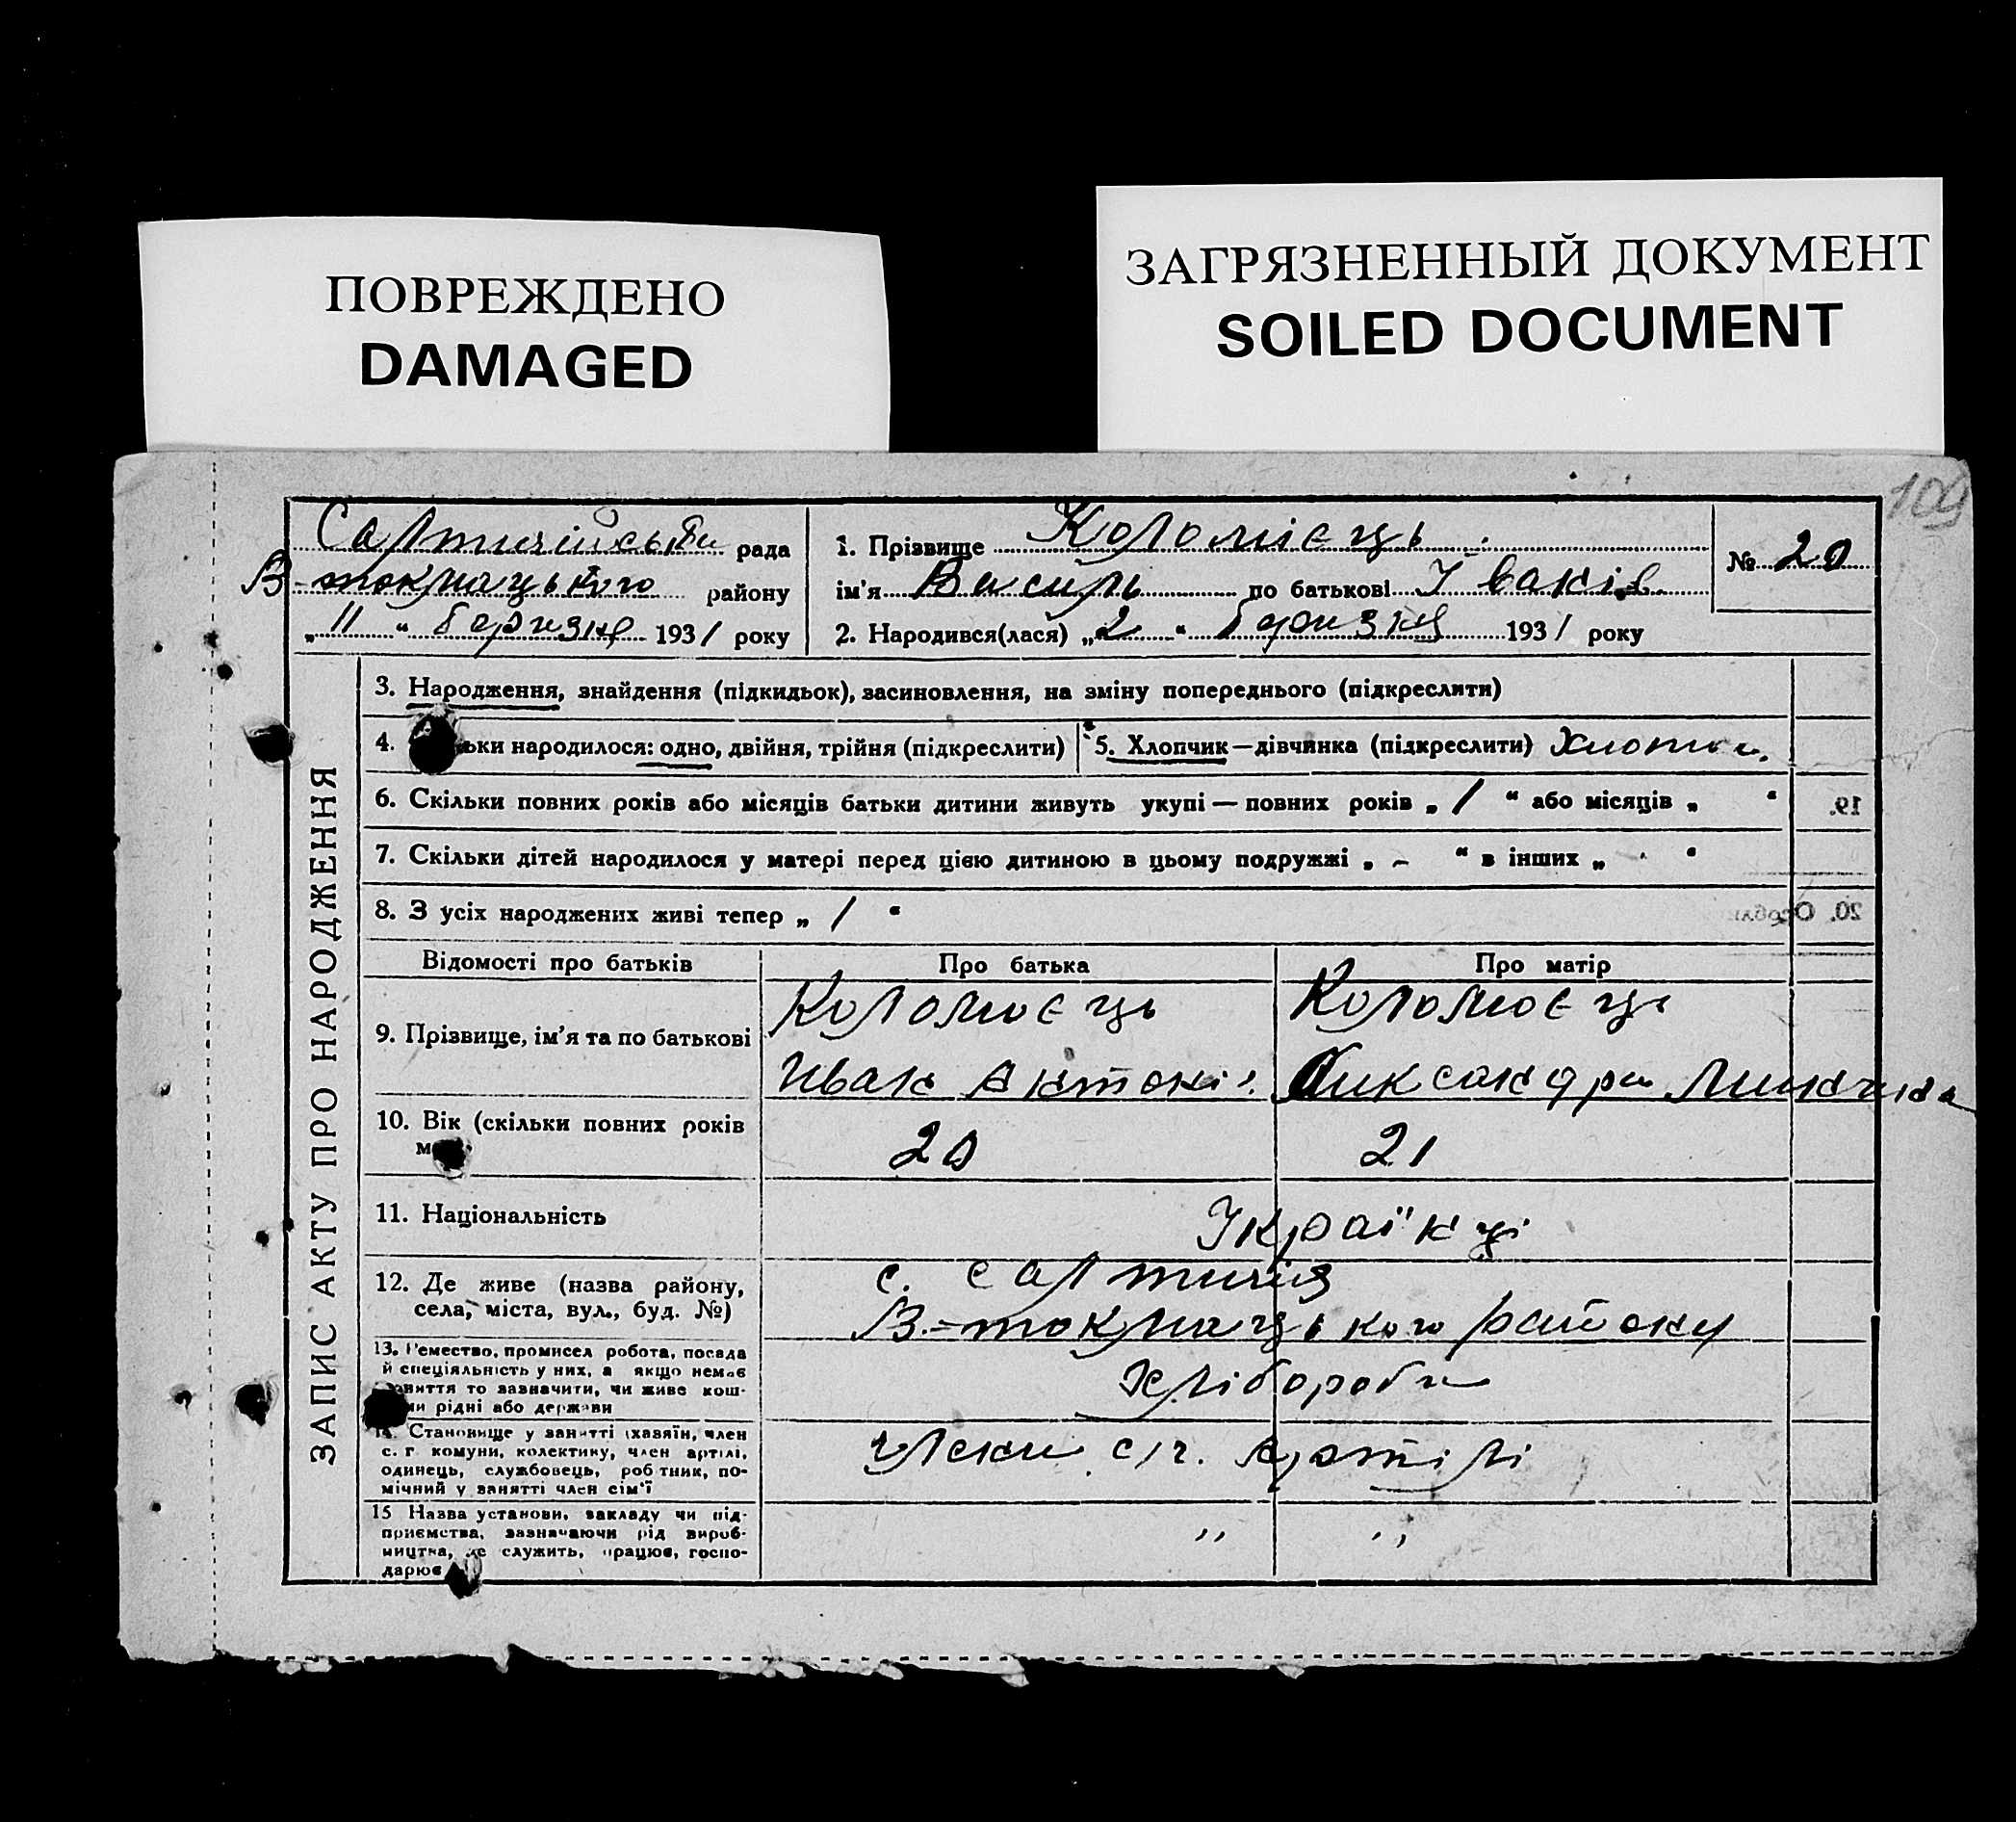 ПОВРЕЖДЕНО
DAMAGED
ЗАГРЯЗНЕННЫЙ ДОКУМЕНТ
SOILED DOCUMENT
109
Салтичійська рада
В-токмацького району
„11“ березня 1931 року
1. Прізвище Коломієць
ім'я Василь по батькові Іванів.
2. Народився(лася) „2“ березня 1931 року
№ 20
ЗАПИС АКТУ ПРО НАРОДЖЕННЯ
3. Народження, знайдення (підкидьок), засиновлення, на зміну попереднього (підкреслити)
4. ьки народилося: одно, двійня, трійня (підкреслити)
5. Хлопчик—дівчинка (підкреслити)
6. Скільки повних років або місяців батьки дитини живуть укупі — повних років „ / “ або місяців „ “
7. Скільки дітей народилося у матері перед цією дитиною в цьому подружжі „ - “ в інших „ “
8. З усіх народжених живі тепер „ / “
19.
20. Особли
Відомості про батьків
Про батька
Про матір
9. Прізвище, ім'я та по батькові
Коломоєць
Иван Антонів
Коломоєць
Олександра
10. Вік (скільки повних років
20
21
11. Національність
Українці
12. Де живе (назва району,
села, міста, вул., буд. №)
с. Салтичія
В.-токмацького району
13. Ремество, промисел робота, посада
й спеціяльність у них, а якщо немає
няття то зазначити, чи живе кош-
ми рідні або держави
Хлібороби
14. Становище у занятті (хазяїн, член
с. г. комуни, колективу, член артілі,
одинець, службовець, робітник, по-
мічний у занятті член сім'ї
члени с/г. Артілі
15 Назва установи, закладу чи під-
приємства, зазначаючи рід вироб-
ництва, де служить, працює, госпо-
дарює
„ „